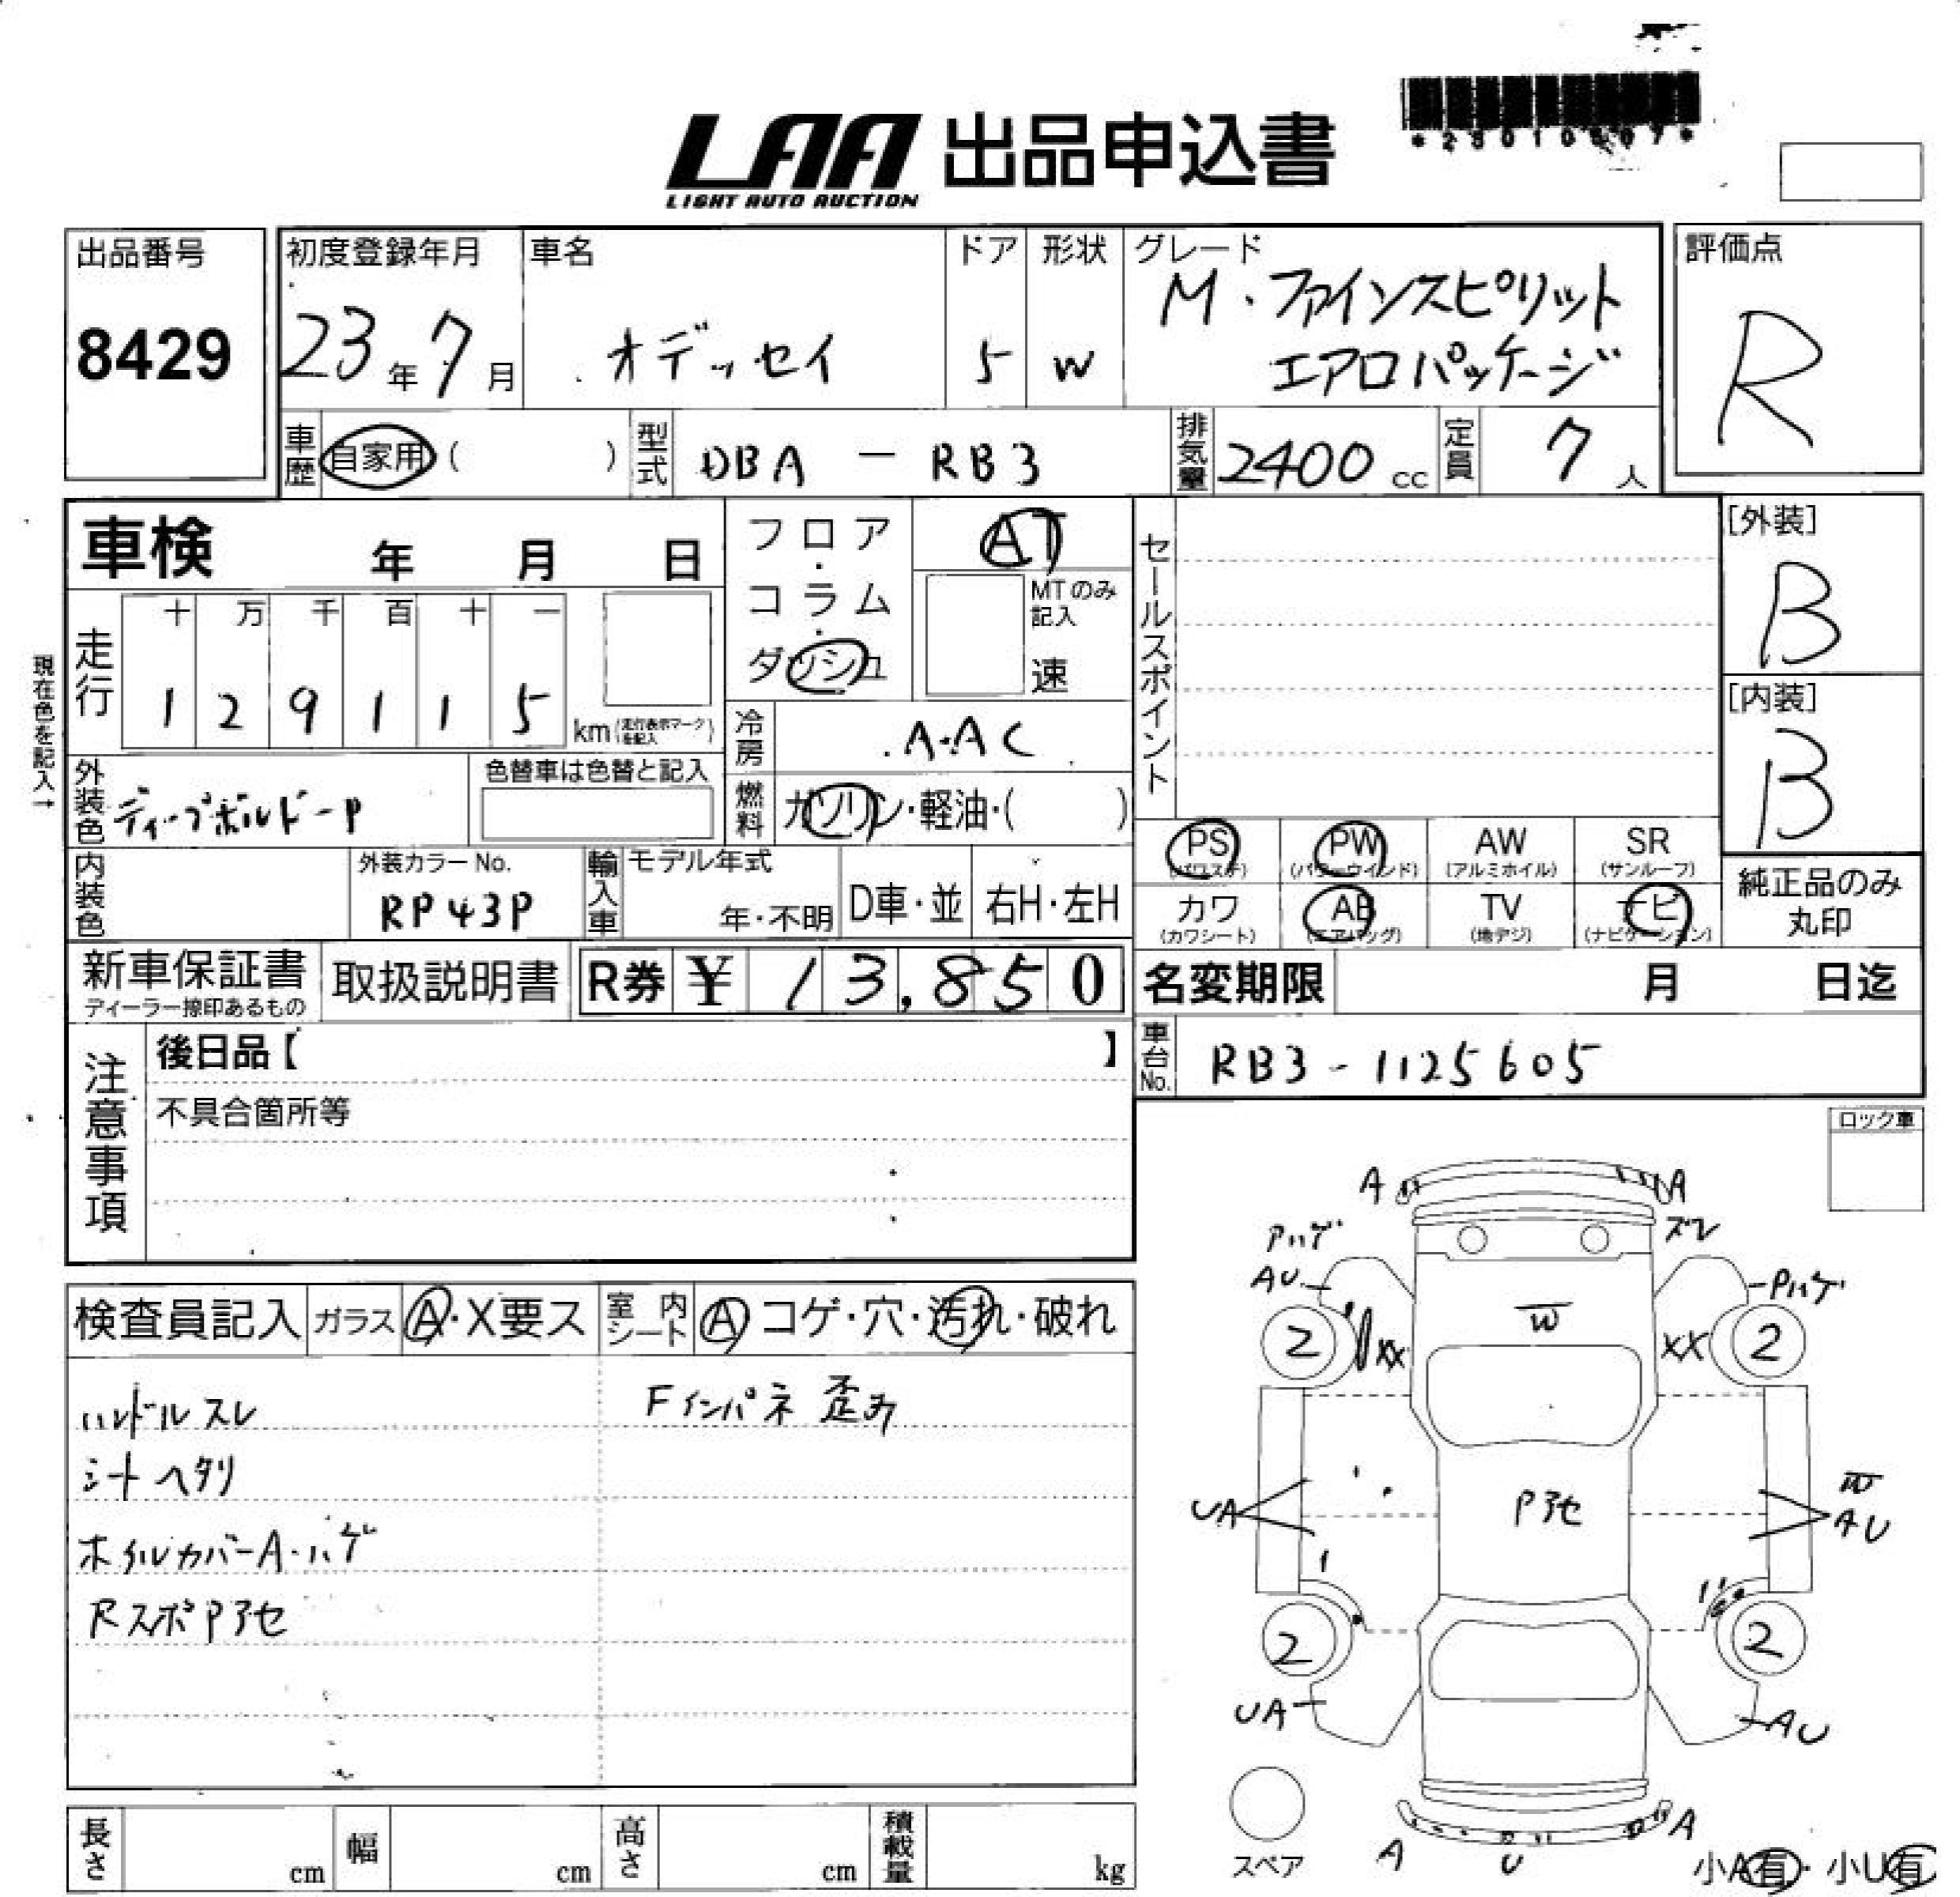 LAA 出品申込書
LIGHT AUTO AUCTION
出品番号
8429
初度登録年月
23年7月
車名
オデッセイ
ドア
5
形状
W
グレード
M・ファインスピリット
エアロパッケージ
評価点
R
車歴 自家用 ( )
型式 DBA - RB3
排気量 2400 cc
定員 7 人
車検 年 月 日
フロア・コラム・ダッシュ
AT
MTのみ記入
速
セールスポイント
[外装]
B
[内装]
B
現在色を記入→
走行
十 万 千 百 十 一
1 2 9 1 1 5
km (走行表示マークを記入)
冷房 A・AC
燃料 ガソリン・軽油・( )
外装色
色替車は色替と記入
内装色
外装カラーNo.
RP43P
輸入車
モデル年式
年・不明
D車・並
右H・左H
PS (パワステ)
PW (パワーウインド)
AW (アルミホイル)
SR (サンルーフ)
カワ (カワシート)
AB (エアバッグ)
TV (地デジ)
ナビ (ナビゲーション)
純正品のみ
丸印
新車保証書
ディーラー捺印あるもの
取扱説明書
R券 ¥ 13,850
名変期限 月 日迄
車台No. RB3-1125605
注意事項
後日品【 】
不具合箇所等
ロック車
検査員記入
ガラス A・X要ス
室内シート A コゲ・穴・汚れ・破れ
ハンドルスレ
Fインパネ 歪み
シートヘタリ
ホイルカバーA・ハゲ
RスポPアセ
A A
Pハゲ
ズレ
AU
Pハゲ
W
2 XX XX 2
UA
Pアセ
W
AU
2 2
UA
AU
スペア
A U A
小A有・小U有
長さ cm
幅 cm
高さ cm
積載量 kg